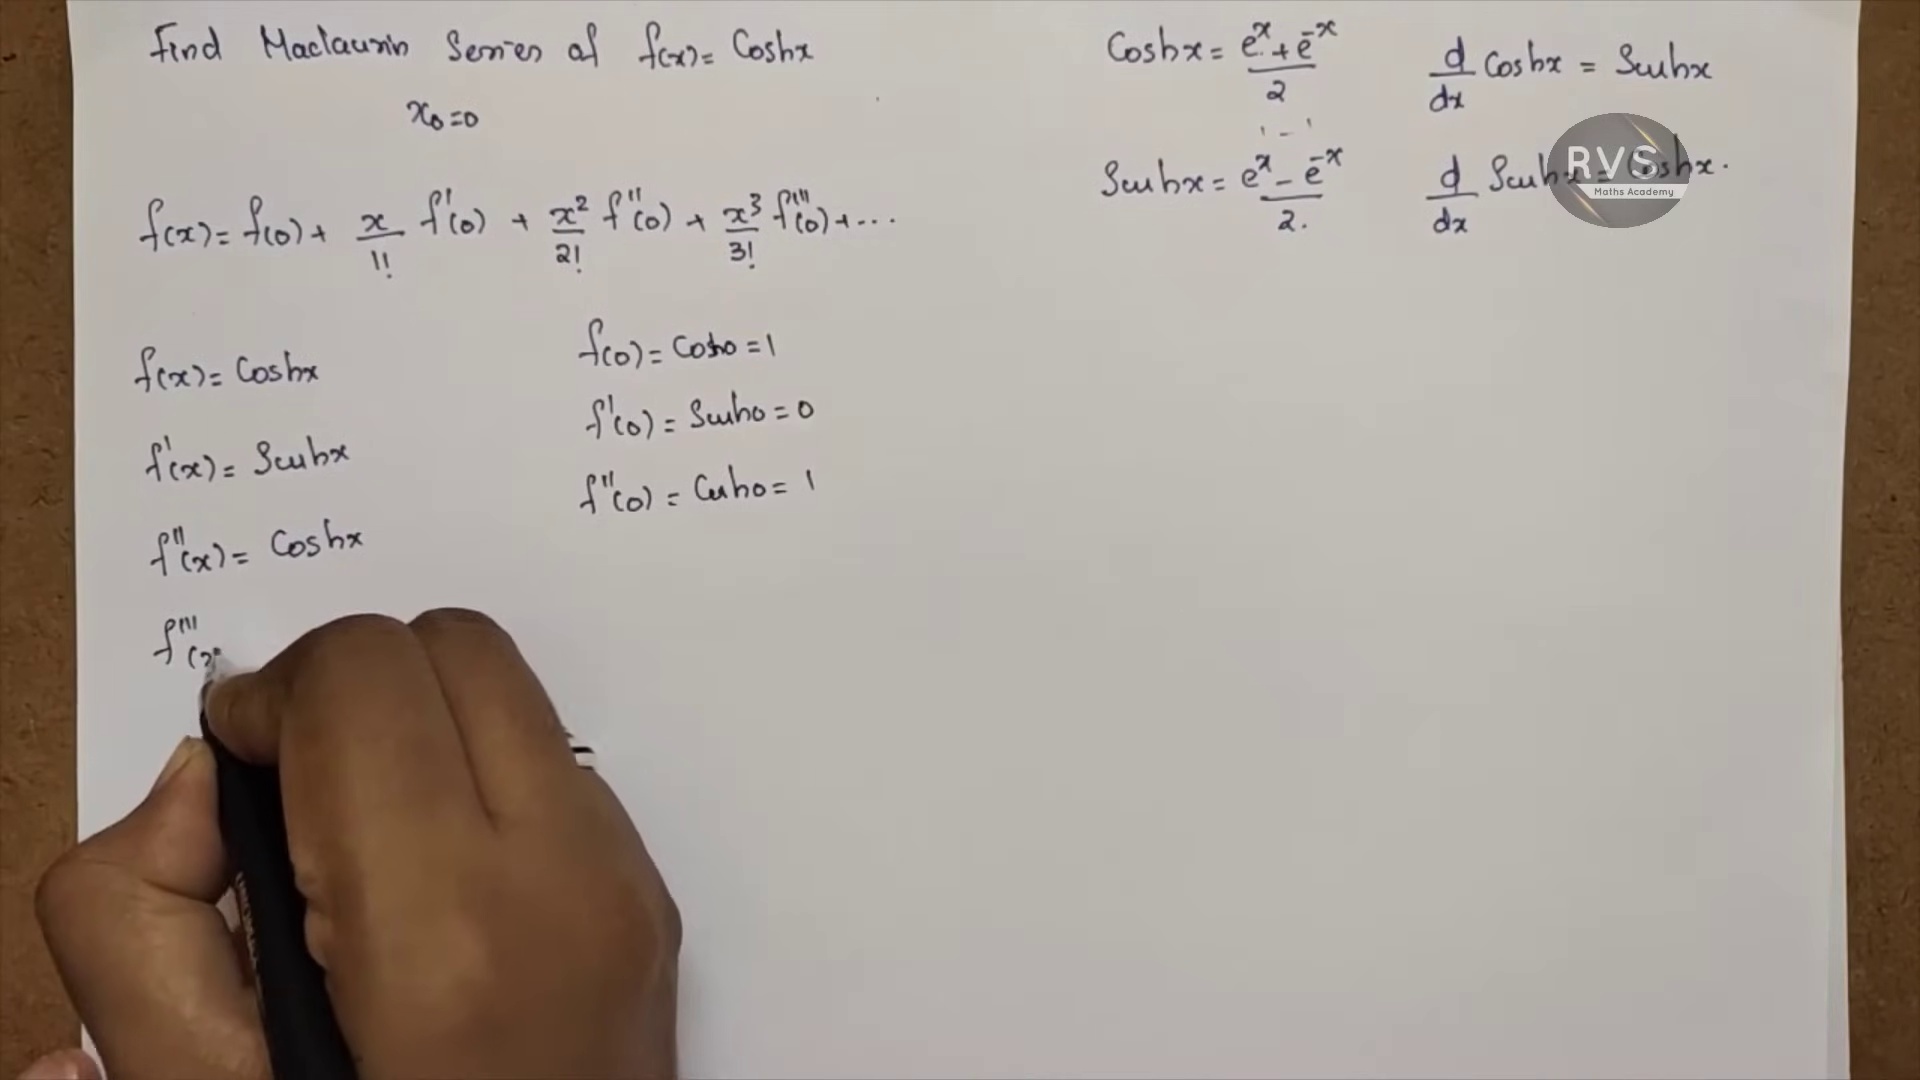 Find Maclaurin Series of f(x) = Coshx
x₀=0
f(x) = f(0) + x/1! f'(0) + x²/2! f''(0) + x³/3! f'''(0) + ...
f(x) = Coshx
f'(x) = Sinhx
f''(x) = Coshx
f'''(x
f(0) = Cosh0 = 1
f'(0) = Sinh0 = 0
f''(0) = Cosh0 = 1
Coshx = eˣ + e⁻ˣ/2
Sinhx = eˣ - e⁻ˣ/2.
d/dx Coshx = Sinhx
d/dx Sinhx = Coshx.
RVS
Maths Academy